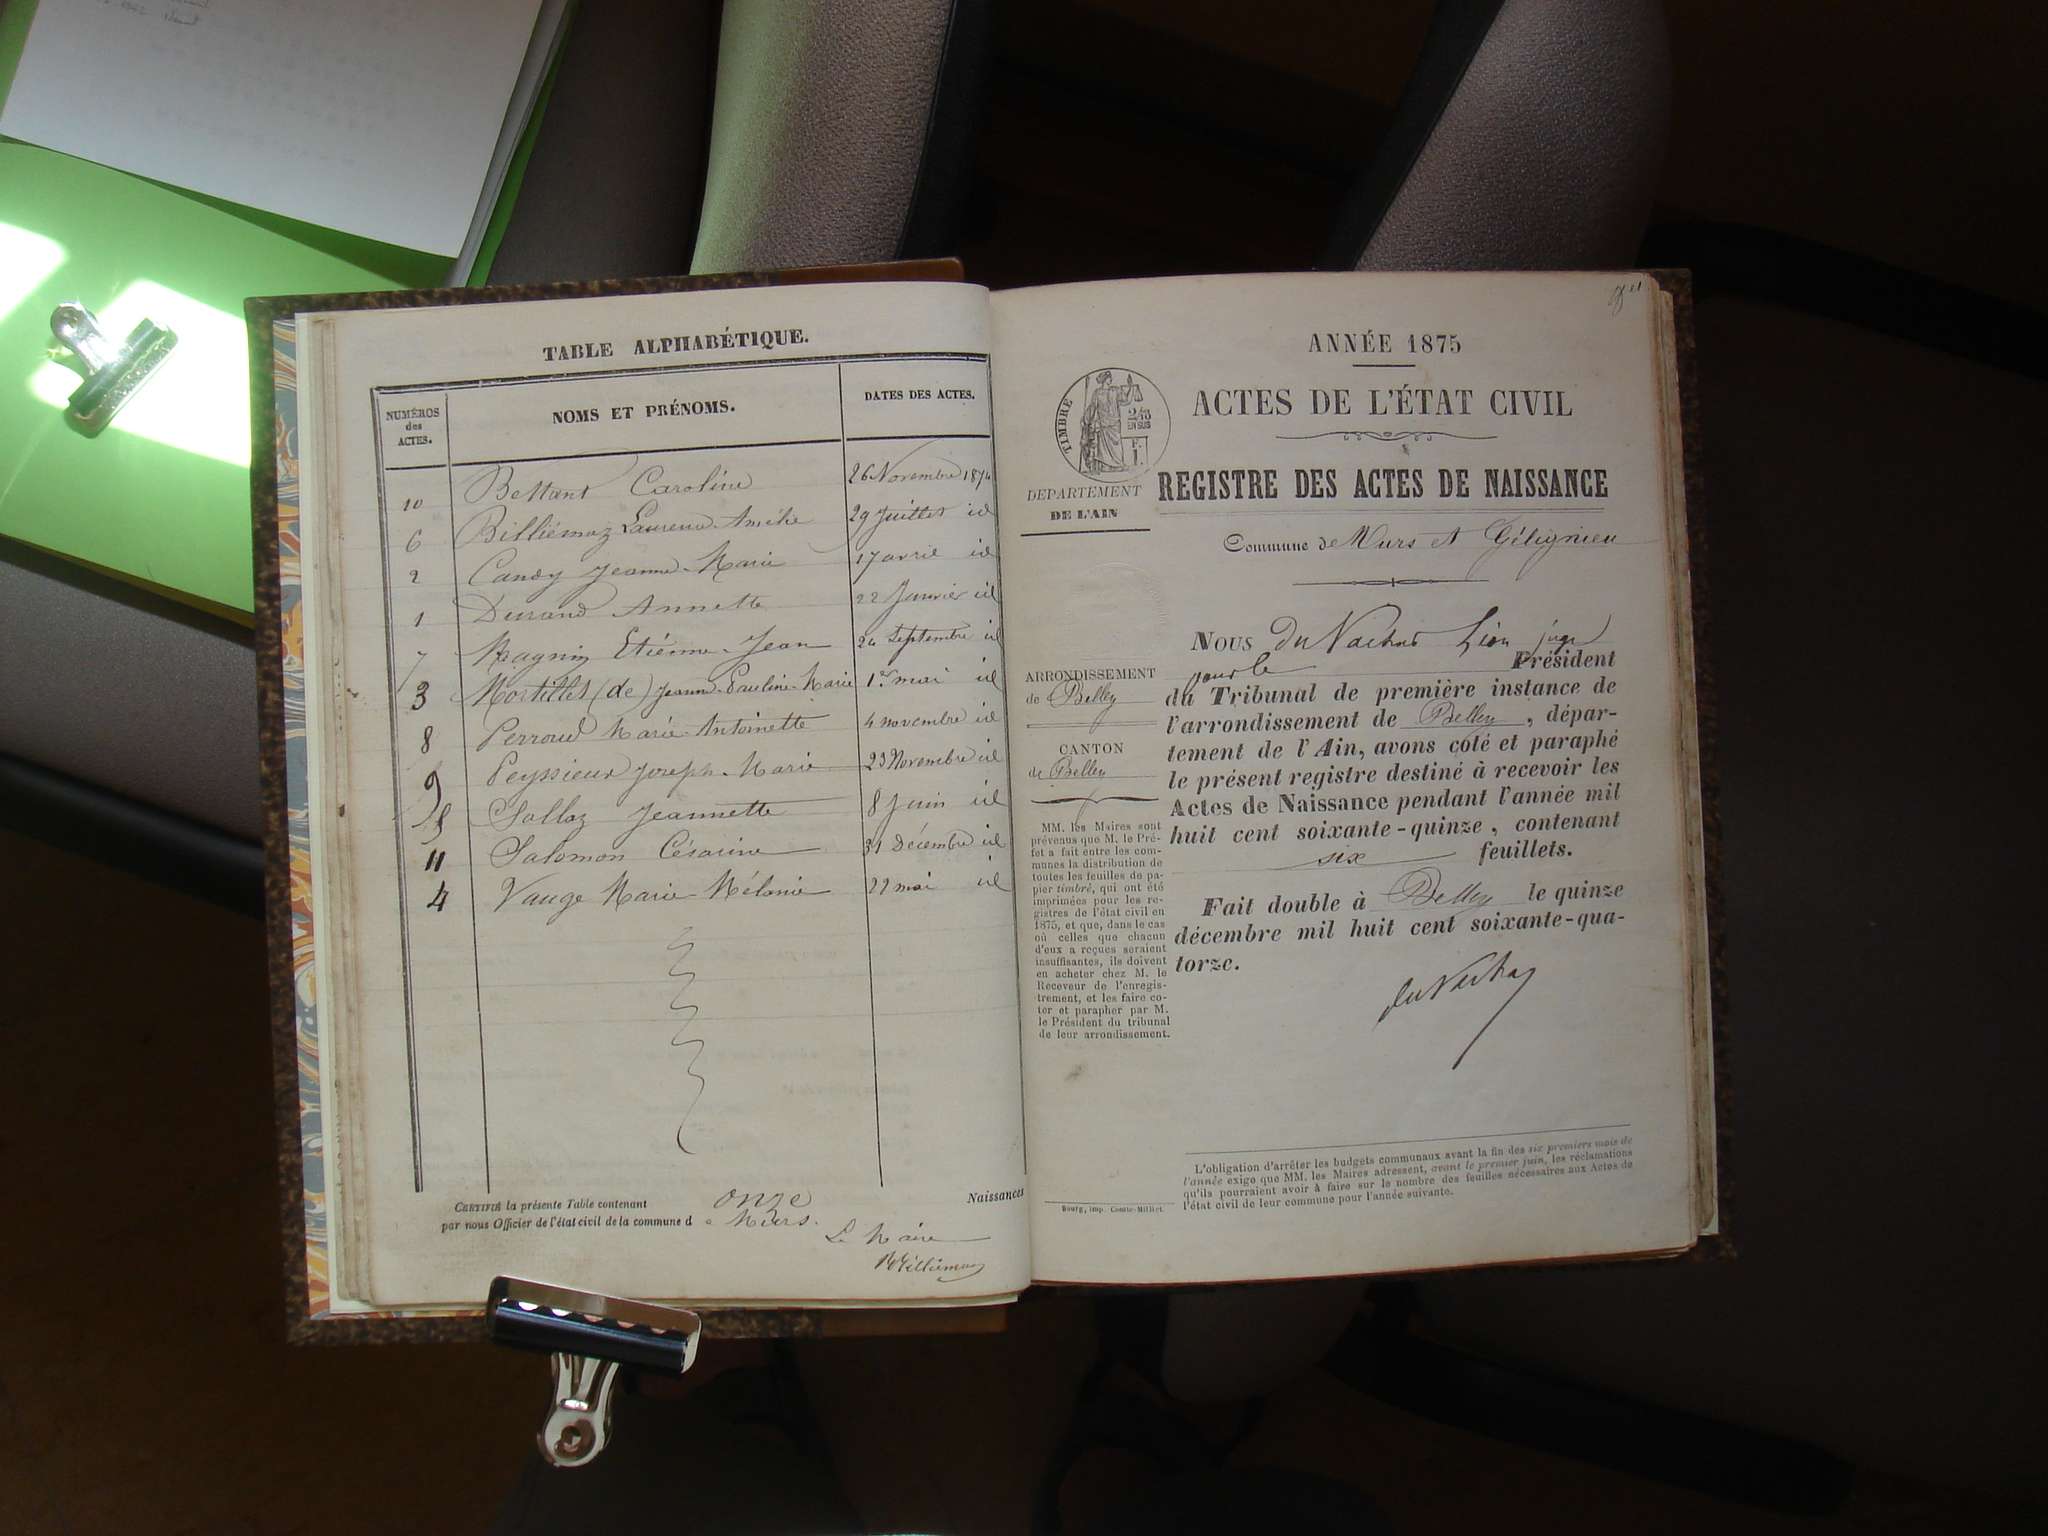 TABLE ALPHABÉTIQUE.
NUMÉROS
des
ACTES.
NOMS ET PRÉNOMS.
DATES DES ACTES.
10 Bettant Caroline 26 Novembre 1874
6 Billiémaz Laurence-Amélie 29 Juillet id
2 Candy Jeanne-Marie 17 avril id
1 Durand Annette 22 Janvier id
7 Magnin Etienne-Jean 24 Septembre id
3 Mortillet (de) Jeanne-Pauline-Marie 1er mai id
8 Perroud Marie-Antoinette 4 novembre id
9 Peyssieux Joseph-Marie 23 Novembre id
5 Sallaz Jeannette 8 Juin id
11 Salomon Césarine 31 Décembre id
4 Vauge Marie-Mélanie 22 mai id
CERTIFIÉ la présente Table contenant onze Naissances
par nous Officier de l'état civil de la commune d e Murs.
Le Maire
Billiémaz
ANNÉE 1875
ACTES DE L'ÉTAT CIVIL
TIMBRE
2/10
EN SUS
REGISTRE DES ACTES DE NAISSANCE
DEPARTEMENT
DE L'AIN
Commune de Murs et Gélignieu
ARRONDISSEMENT
de Belley
CANTON
de Belley
MM. les Maires sont
prévenus que M. le Pré-
fet a fait entre les com-
munes la distribution de
toutes les feuilles de pa-
pier timbré, qui ont été
imprimées pour les re-
gistres de l'état civil en
1875, et que, dans le cas
où celles que chacun
d'eux a reçues seraient
insuffisantes, ils doivent
en acheter chez M. le
Receveur de l'enregis-
trement, et les faire co-
ter et parapher par M.
le Président du tribunal
de leur arrondissement.
Nous du Vachat Léon juge
pour le Président
du Tribunal de première instance de
l'arrondissement de Belley, dépar-
tement de l'Ain, avons coté et paraphé
le présent registre destiné à recevoir les
Actes de Naissance pendant l'année mil
huit cent soixante-quinze, contenant
six feuillets.
Fait double à Belley le quinze
décembre mil huit cent soixante-qua-
torze.
du Vachat
L'obligation d'arrêter les budgets communaux avant la fin des six premiers mois de
l'année exige que MM. les Maires adressent, avant le premier juin, les réclamations
qu'ils pourraient avoir à faire sur le nombre des feuilles nécessaires aux Actes de
l'état civil de leur commune pour l'année suivante.
Bourg, imp. Comte-Milliet.